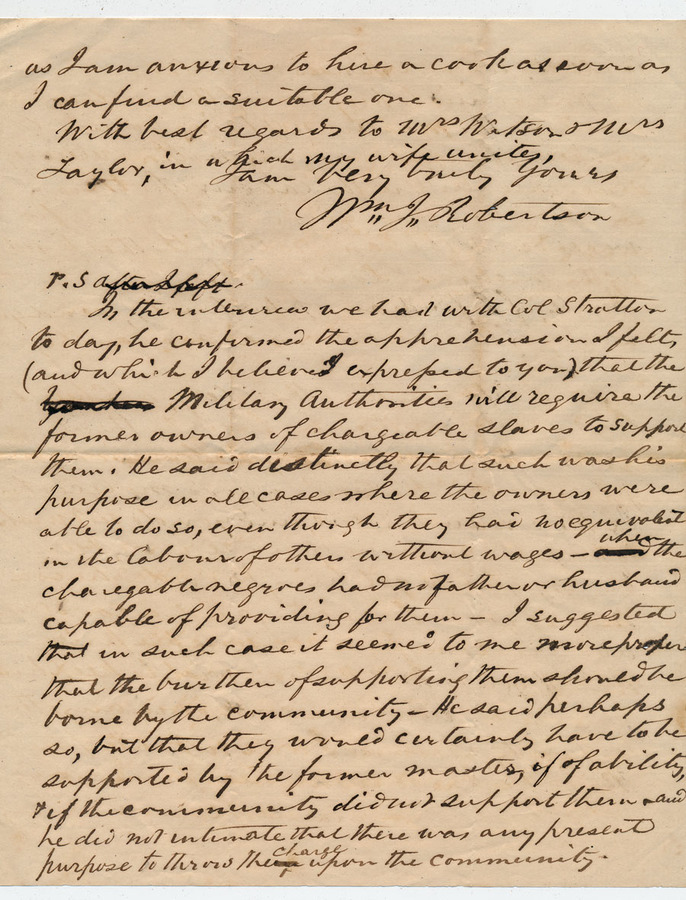 as I am anxious to hire a cook as soon as
I can find a suitable one.
With best regards to Mrs Watson & Mrs
Taylor, in which my wife unites,
I am Very truly Yours
Wm J. Robertson
P.S after I left.
In the interview we had with Col Stratton
to day, he confirmed the apprehension I felt,
(and which I believe I expressed to you), that the
Military Authorities will require the
former owners of chargeable slaves to support
them. He said distinctly that such was his
purpose in all cases where the owners were
able to do so, even though they had no equivalent
in the labour of others without wages - when the
chargeable negroes had no father or husband
capable of providing for them - I suggested
that in such case it seemed to me more proper
that the burthen of supporting them should be
borne by the community - He said perhaps
so, but that they would certainly have to be
supported by the former master, if of ability,
& if the community did not support them - and
he did not intimate that there was any present
purpose to throw the charge upon the community.